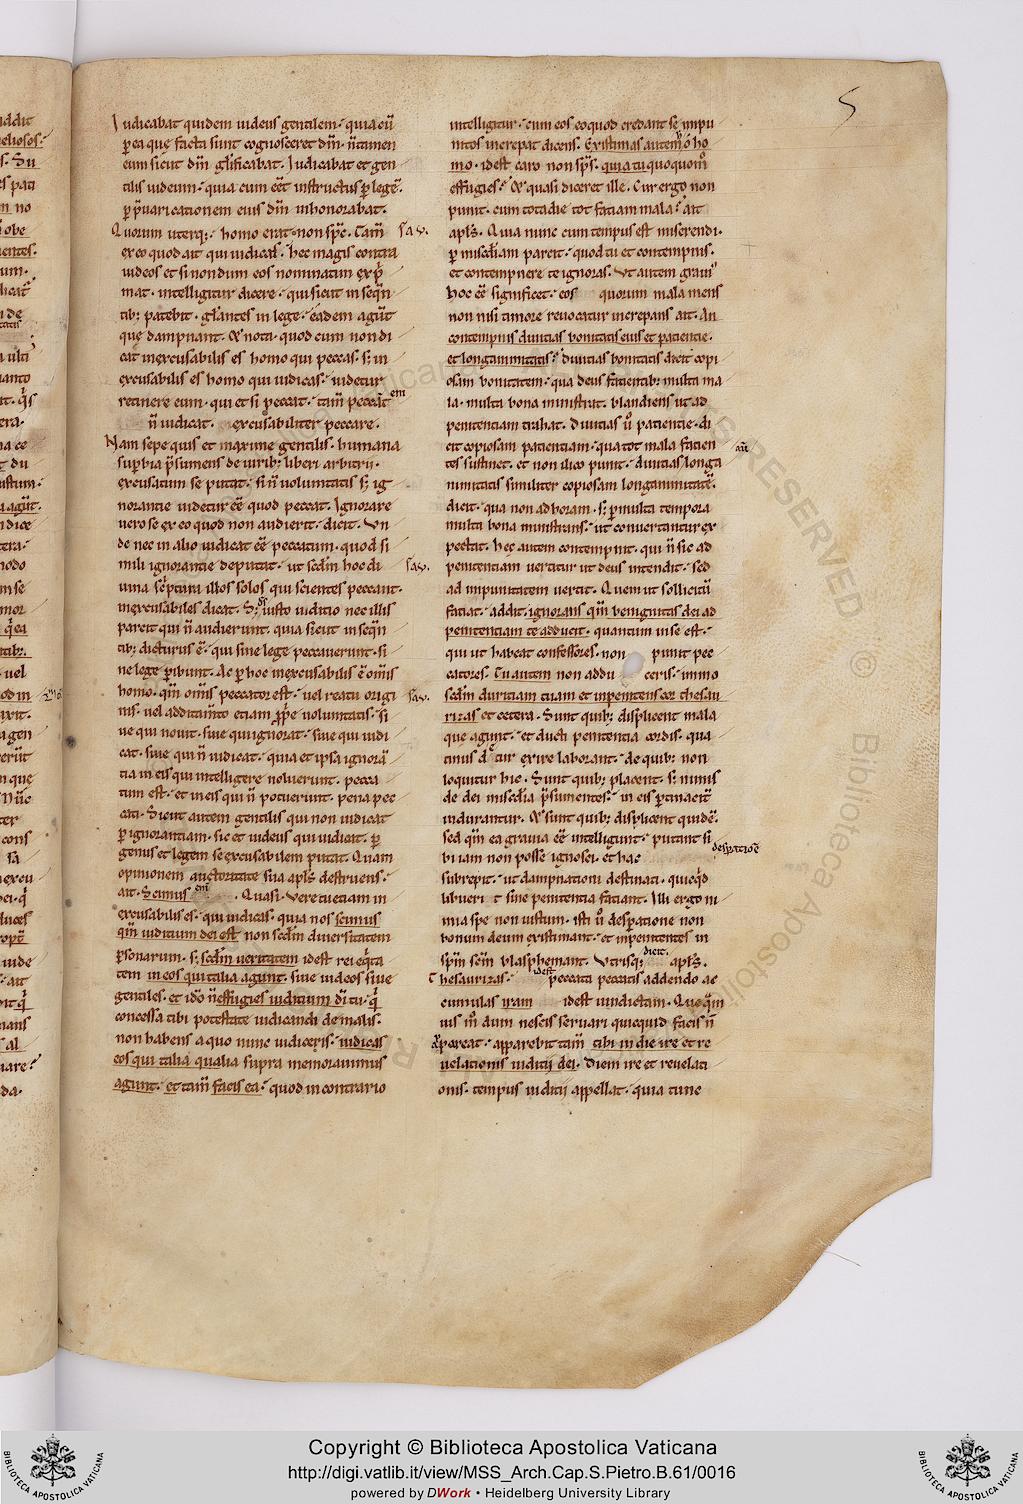 5
Iudicabat quidem iudeus gentilem. quia cū
p ea que facta sunt cognosceret dm̄. n̄ tamen
eum sicut dm̄ glificabat. Iudicabat et gen
tilis iudeum. quia cum eēt instructus p legē.
p puaricationem eius dm̄ inhonorabat.
Quorum uterq; homo erat non spc̄. Tam̄
ex eo quod ait qui iudicas. hec magis contra
iudeos et si nondum eos nominatim exp̄
mat. intelligitur dicere. qui sicut in seqn̄
tib; patebit. glantes in lege. eadem agūt
que dampnant. Et nota. quod cum non di
cat inexcusabilis es homo qui peccas. s; in
excusabilis es homo qui iudicas. uidetur
retinere eum. qui et si peccat. tam̄ peccat̄ em
n̄ iudicat. excusabiliter peccare.
Nam sepe quis et maxime gentilis. humana
supbia psumens de uirib; liberi arbitrii.
excusatum se putat. si n̄ uoluntatis s; ig
norantie uidetur eē quod peccat. Ignorare
uero se ex eo quod non audierit. dicit. Vn
de nec in alio iudicat eē peccatum. quod si
mili ignorantie deputat. ut sedm̄ hoc di
uina scptura illos solos qui scientes peccant.
inexcusabiles dicat. S; iusto iuditio nec illis
parcit qui n̄ audierunt. quia sicut in seqn̄
tib; dicturus ē. qui sine lege peccauerunt. si
ne lege pibunt. Ac p hoc inexcusabilis ē omīs
homo. qm̄ omīs peccator est. uel reatu origi
nis. uel additam̄to etiam ppe uoluntatis. si
ue qui nouit. siue qui ignorat. siue qui iudi
cat. siue qui n̄ iudicat. quia et ipsa ignorā
tia in eis qui intelligere noluerunt. pecca
tum est. et in eis qui n̄ potuerunt. pena pec
cati. Sicut autem gentilis qui non iudicat
p ignorantiam. sic et iudeus qui iudicat. p
genus et legem se excusabilem putat. Quam
opinionem auctoritate sua apls destruens.
ait. Scimus em̄. Quasi. Vere tu etiam in
excusabilis es. qui iudicas. quia nos scimus
qm̄ iuditium dei est non sedm̄ diuersitatem
psonarum. s; sedm̄ ueritatem idest rei eqta
tem in eos qui talia agunt. siue iudeos siue
gentiles. et ido n̄ effugies iuditium di tu. q
concessa tibi potestate iudicandi de malis.
non habens a quo nunc iudiceris. iudicas
eos qui talia qualia supra memorauimus
agunt. et tam̄ facis ea. quod in contrario
intelligitur. cum eos eo quod credant se impu
nitos increpat dicens. Existimas autem o ho
mo. idest caro non sps. quia tu quoquo m
effugies. Et quasi diceret ille. Cur ergo non
punit. cum tota die tot faciam mala. ait
apls. Quia nunc cum tempus est miserendi.
p miscdiam parcit. quod tu et contempnis.
et contempnere te ignoras. Vt autem graui
hoc eē significet. eos quorum mala mens
non nisi timore reuocatur increpans ait. An
contempnis diuitias bonitatis eius et patientie.
et longanimitatis. diuitias bonitatis dicit copi
osam bonitatem. qua deus facientib; multa ma
la. multa bona ministrat. blandiens ut ad
penitentiam trahat. Diuitias u patientie. di
cit copiosam patientiam. qua tot mala facien
tes sustinet. et non ilico punit. diuitias longa
nimitatis similiter copiosam longanimitatē.
dicit. qua non ad horam. s; p multa tempora
multa bona ministrans. ut conuertantur ex
pectat. hec autem contempnit. qui n̄ sic ad
penitentiam uertitur ut deus intendit. sed
ad impunitatem uertit. Quem ut sollicitū
faciat. addit. ignorans qm̄ benignitas dei ad
penitentiam te adducit. quantum in se est.
qui ut habeat confessores. non punit pec
catores. Tu autem non adduceris. immo
sedm̄ duritiam tuam et inpenitens cor thesau
rizas et cetera. Sunt quib; displicent mala
que agunt. et ducti penitentia cordis. qua
tinus de cur exire laborant. de quib; non
loquitur hic. Sunt quib; placent. s; nimis
de dei miscdia psumentes. in eis ptinacit
indurantur. Et sunt quib; displicent quidē.
sed qm̄ ea grauia eē intelligunt. putant si
bi iam non posse ignosci. et hac despatioē
subrepit. ut dampnationi destinati. quicqd
libuerit sine penitentia faciant. Illi ergo ni
mia spe non iustum. isti u despatione non
bonum deum existimant. et inpenitentes in
spm̄ scm̄ blasphemant. Vtrisq; dicit. apls.
Thesaurizas. idest peccata peccatis addendo ac
cumulas iram idest uindictam. Que qm̄
uis m̄ dum nescis seruari quicquid facis n̄
appareat. apparebit tam̄ tibi in die ire et re
uelationis iuditii dei. Diem ire et reuelati
onis. tempus iuditii appellat. quia tunc
Copyright © Biblioteca Apostolica Vaticana
http://digi.vatlib.it/view/MSS_Arch.Cap.S.Pietro.B.61/0016
powered by DWork • Heidelberg University Library